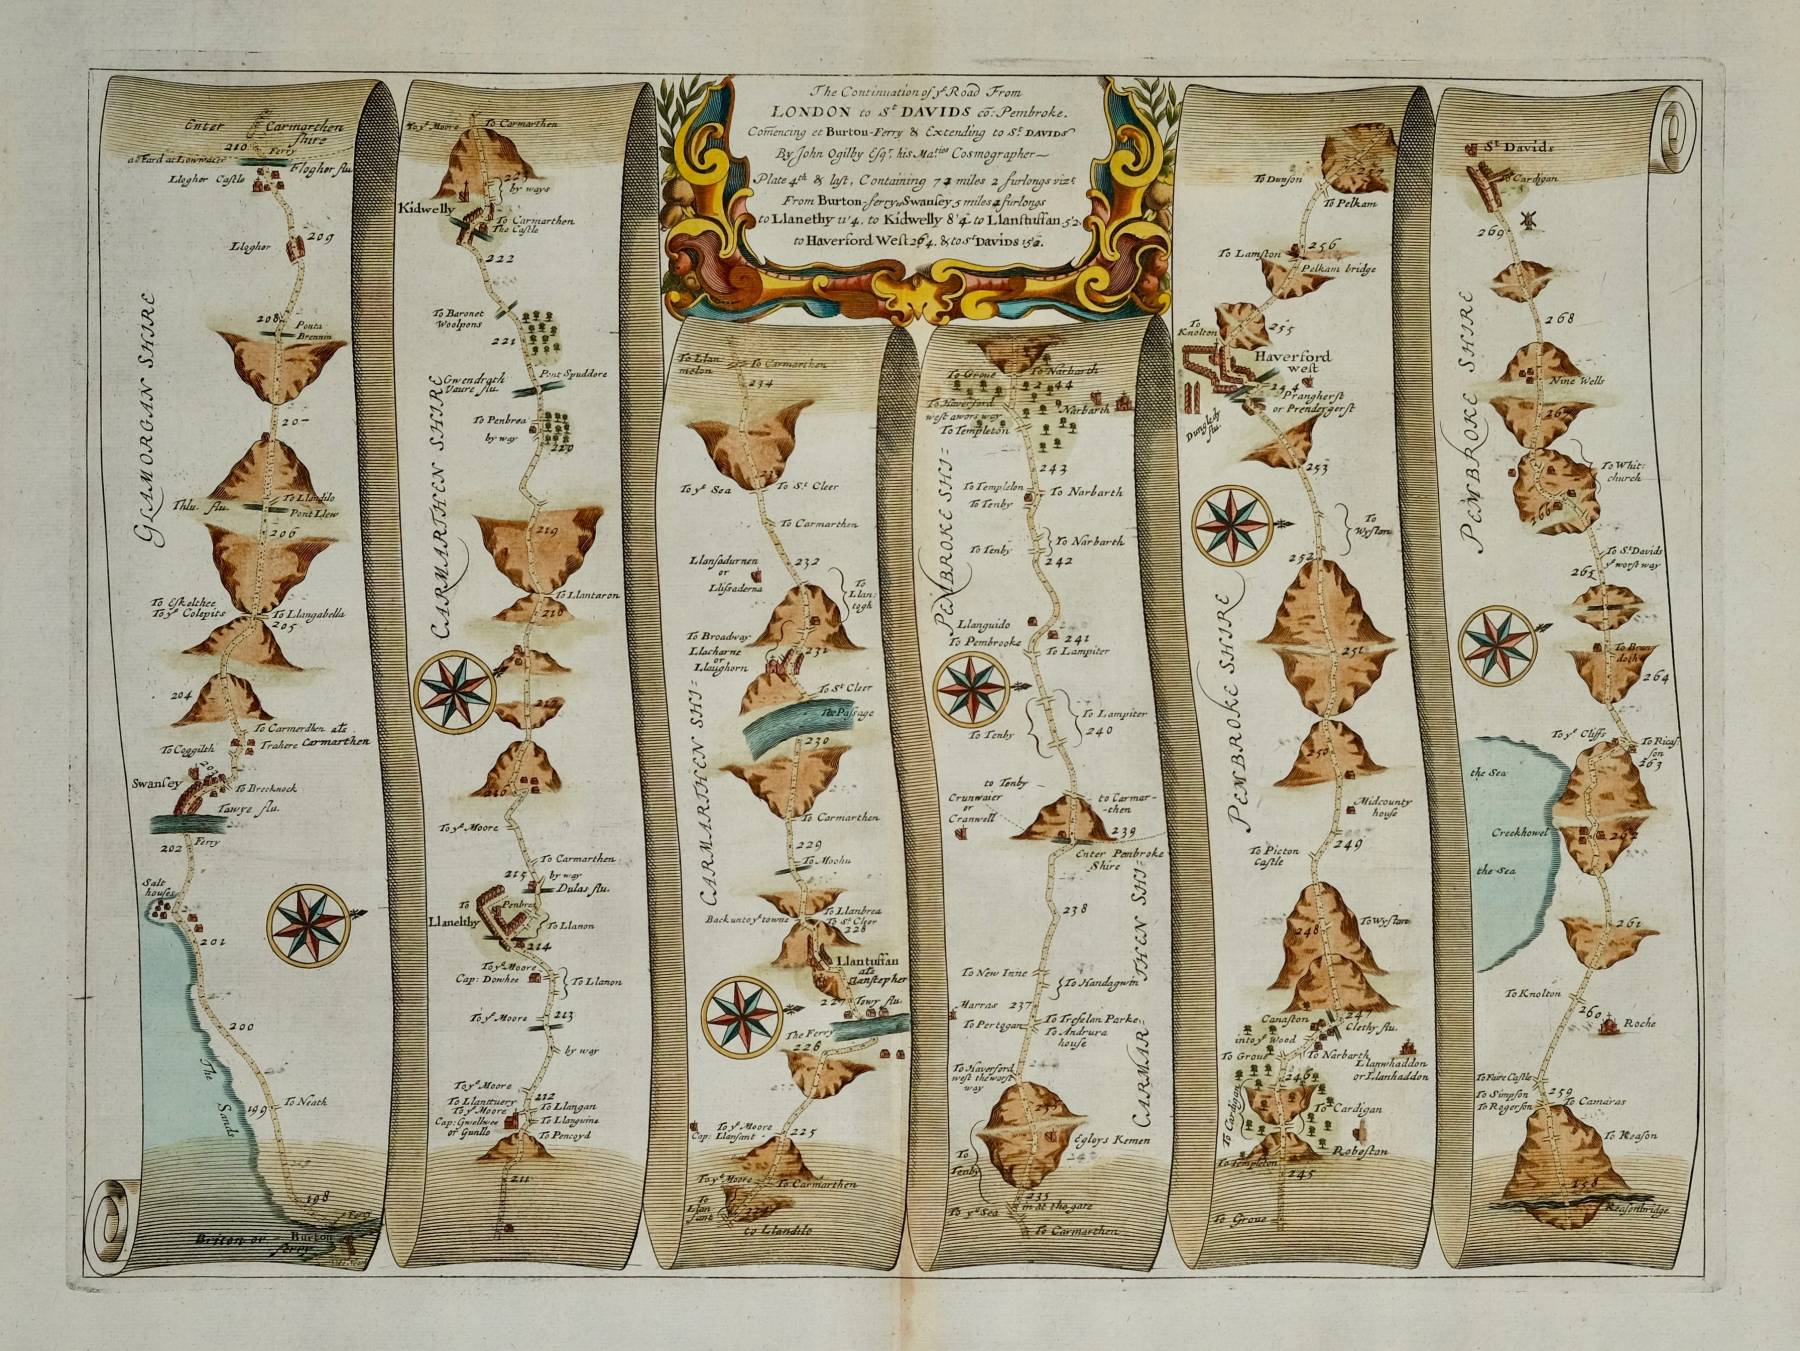 The Continuation of yᵉ Road From
LONDON to Sᵗ DAVIDS cõ: Pembroke.
Com̃encing at Burton-Ferry & Extending to Sᵗ DAVIDS
By John Ogilby Esqʳ. his Maᵗⁱᵉˢ Cosmographer
Plate 4ᵗʰ & last, Containing 72 miles 2 furlongs vizᵗ
From Burton-ferry to Swansey 5 miles 2 furlongs
to Llanethy 11'4. to Kidwelly 8'4. to Llanstuffan 5'2.
to Haverford West 26'4. & to Sᵗ DAVIDS 15'2.
Enter Carmarthen
shire
210
Ferry
Flogher flu.
Llogher Castle
209
Llogher
208
Ponta
Brennin
GLAMORGAN SHIRE
207
To Llandilo
Thlu. flu.
Pont Llew
206
To Eskelthee
To yᵉ Colepits
To Llangabella
205
204
To Carmerdhen aƚs
Trahere Carmarthen
To Coggilth
203
Swansey
To Brecknock
Tawye flu.
Ferry
202
Salt
houses
201
200
The Sands
199
To Neath
198
Briton or
ferry
Burton
To yᵉ Moore
To Carmarthen
223
by ways
Kidwelly
To Carmarthen
The Castle
222
To Baronet
Woolpons
221
Gwendrath
Vaure flu.
Pont Spuddore
To Penbrea
by way
220
CARMARTHEN SHIRE
219
To Llantaron
218
217
216
To yᵉ Moore
To Carmarthen
by way
215
Dulas flu.
To
Llanelthy
Penbre
To Llanon
214
To yᵉ Moore
Cap: Dowhee
To Llanon
To yᵉ Moore
213
by way
To yᵉ Moore
212
To Llanttuery
To yᵉ Moore
Cap: Gwellwee
or Gunllo
To Llangan
To Llanguine
To Pencoyd
211
To Llan
melon
To Carmarthen
234
To yᵉ Sea
To Sᵗ Cleer
To Carmarthen
Llansadurnen
or
Llissaderna
232
To
Llan=
togh
To Broadway
Llacharne
or
Llaughorn
231
To Sᵗ Cleer
The Passage
230
CARMARTHEN SHI=
To Carmarthen
229
To Moohu
To Llanbrea
Back unto yᵉ towne
To Sᵗ Cleer
228
Llantuffan
aƚs
Llanstepher
227
Towy flu.
The Ferry
226
To yᵉ Moore
Cap: Llansant
225
To yᵉ Moore
To Carmarthen
To
Llan
sant
224
to Llandilo
To Grove
To Narbarth
244
To Haverford
west a wors way
Narbarth
To Templeton
243
To Templeton
To Narbarth
To Tenby
PEMBROKE SHI=
To Tenby
To Narbarth
242
Llanguido
To Pembrooke
241
To Lampiter
To Lampiter
To Tenby
240
to Tenby
Crunwaier
or
Cranwell
to Carmar-
-then
239
Enter Penbroke
Shire
238
CARMARTHEN SHI=
To New Inne
To Handagwin
Marras
237
To Pertogan
To Trefelan Parke
To Andrura
house
To Haverford
west the worst
way
Egloys Kemen
To
Tenby
235
in at the gate
To yᵉ Sea
To Carmarthen
CARMARTHEN SHI=
257
To Dunson
To Pelkam
256
To Lamston
Pelkam bridge
To
Knolton
255
Haverford
west
254
Prangherst
or Prendergerst
Dungledy
flu.
253
To
Wyston
252
251
PEMBROKE SHIRE
250
Midcounty
house
To Picton
Castle
249
To Wyston
248
247
Canaston
into yᵉ Wood
Clethy flu.
To Grove
To Narbarth
Llanwhaddon
or Llanhaddon
246
To Cardigan
To Cardigan
Roboston
To Templeton
245
To Grove
Sᵗ Davids
To Cardigan
269
268
PEMBROKE SHIRE
Nine Wells
267
To Whit:
church
266
To Sᵗ Davids
yᵉ worst way
265
264
To yᵉ Cliffs
To Ricas:
son
263
the Sea
Creekhowel
262
the Sea
261
To Knolton
260
Roche
To Faire Castle
259
To Simpson
To Rogerson
To Camaras
To Reason
158
Reasonbridge